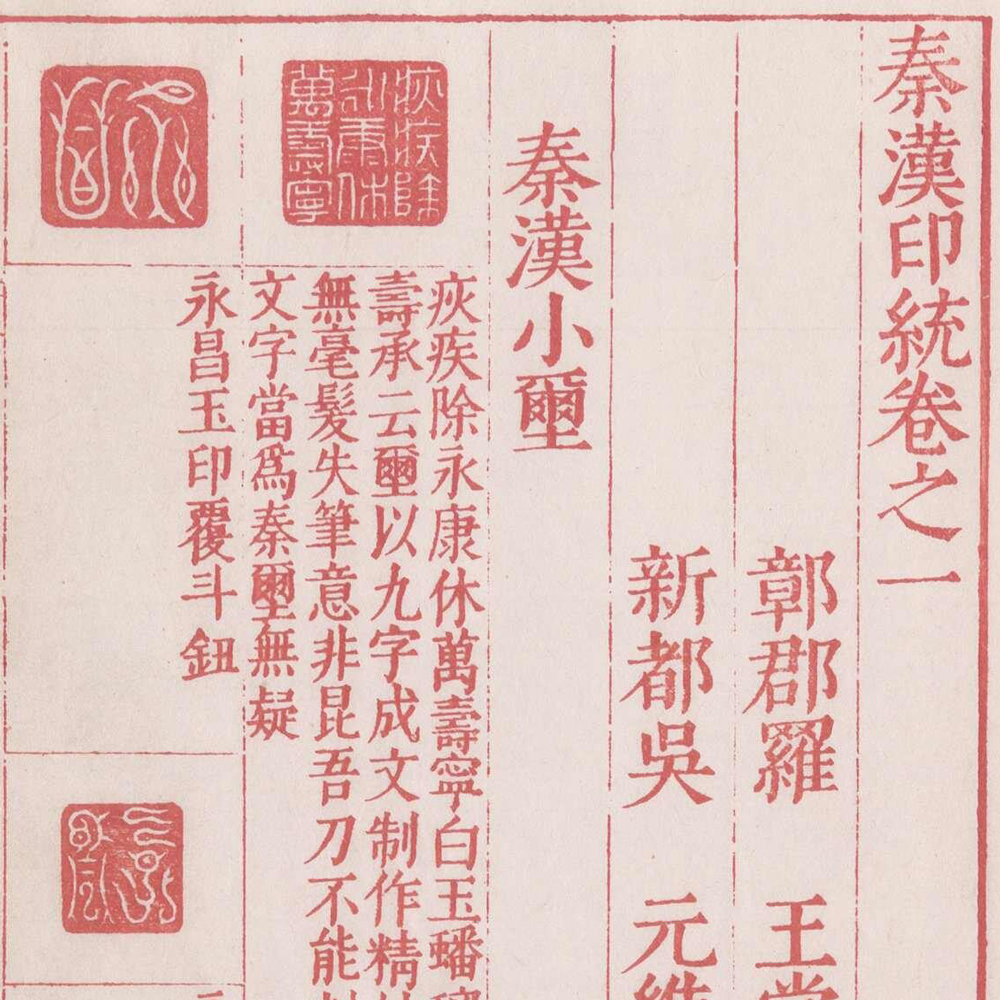 秦漢印統卷之一
鄣郡羅 王常
新都吳 元維
秦漢小璽
疢疾除永康休萬壽寧白玉蟠
壽承云璽以九字成文制作精
無毫髮失筆意非昆吾刀不能
文字當爲秦璽無疑
疢疾除永康休萬壽寧
永昌玉印覆斗鈕
永昌